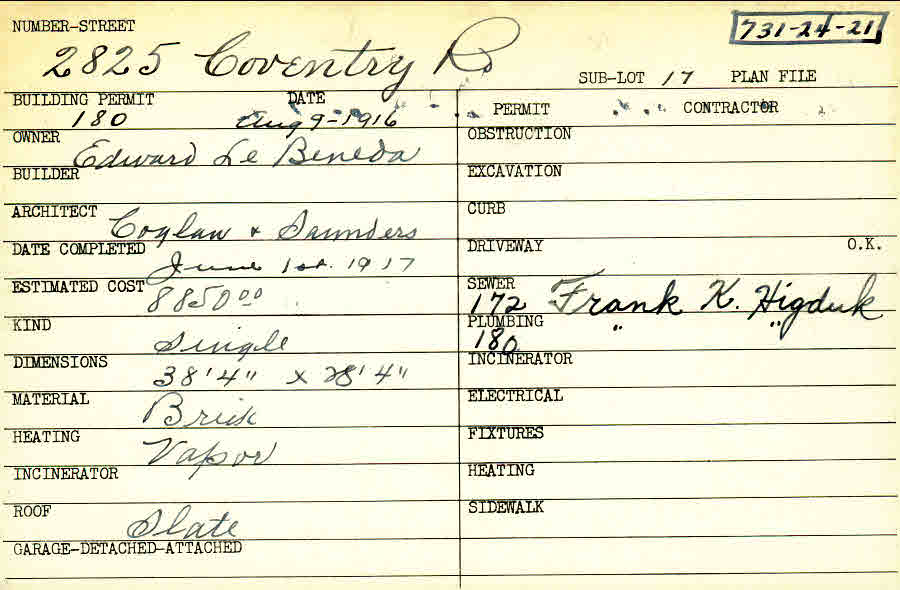 NUMBER-STREET
731-24-21
2825 Coventry Rd
SUB-LOT 17 PLAN FILE
BUILDING PERMIT DATE
180 Aug 9-1916
OWNER Edward Le Beneda
BUILDER
ARCHITECT Coglan & Saunders
DATE COMPLETED June 1st. 1917
ESTIMATED COST 8850 00
KIND Single
DIMENSIONS 38'4" x 28'4"
MATERIAL Brick
HEATING Vapor
INCINERATOR
ROOF Slate
GARAGE-DETACHED-ATTACHED
PERMIT CONTRACTOR
OBSTRUCTION
EXCAVATION
CURB
DRIVEWAY O.K.
SEWER
172 Frank K. Higduk
PLUMBING " "
180
INCINERATOR
ELECTRICAL
FIXTURES
HEATING
SIDEWALK